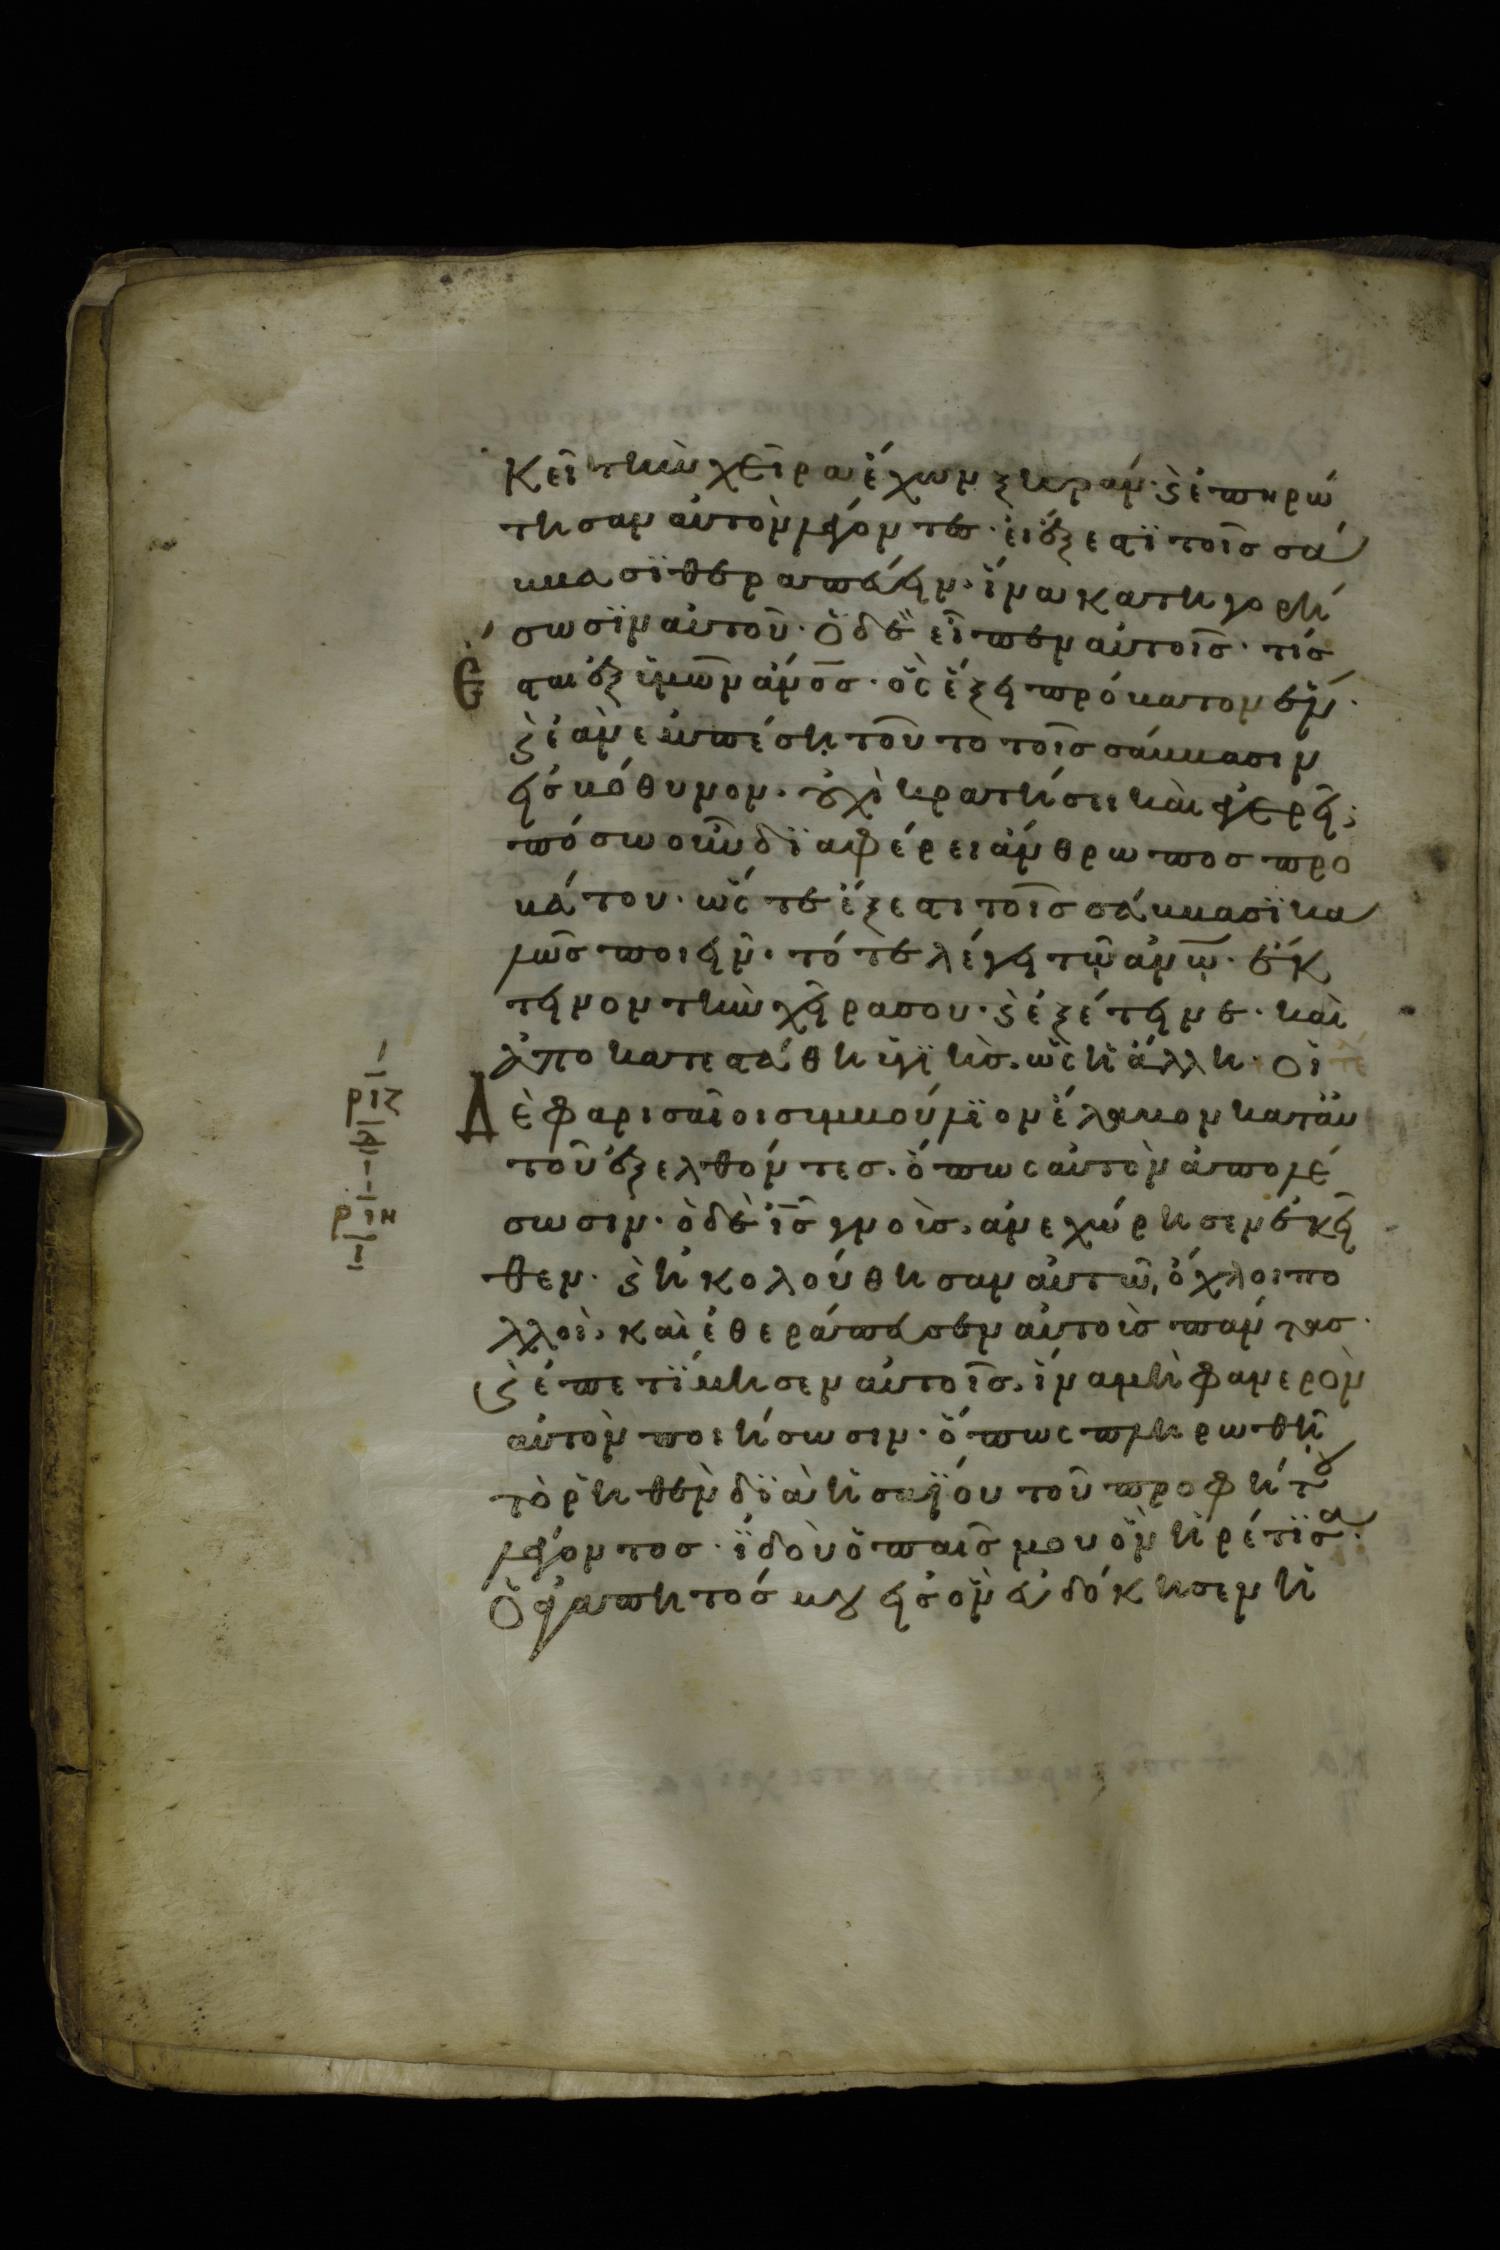 κεῖ τὴν χεῖρα ἔχων ξηράν· ϗ ἐπηρώ
τησαν αὐτὸν λέγοντες· εἰ ἔξεστϊ τοῖς σά
ββασϊ θεραπεύειν· ἵνα κατηγορή
σωσϊν αὐτοῦ· ὁ δὲ εἶπεν αὐτοῖς· τίς
ἔσται ἐξ ὑμῶν ἄνος· ὃς ἕξει πρόβατον ἕν·
ϗ ἐὰν ἐμπέση τοῦτο τοῖς σάββασιν
εἰς βόθυνον· οὐχὶ κρατήσει καὶ ἐγερεῖ;
πόσω οὖν δϊαφέρει ἄνθρωπος προ
βάτου· ὥστε ἔξεστι τοῖς σάββασϊ κα
λῶς ποιεῖν· τότε λέγει τῷ ἀνῷ· ἔκ
τεινον τὴν χεῖρα σου· ϗ ἐξέτεινε· καὶ
ἀποκατεστάθη ὑγϊὴς· ὡς ἡ ἄλλη· οἱ
Δὲ φαρισαῖοι συμβούλϊον ἔλαβον κατ αὐ
τοῦ ἐξελθόντες· ὅπως αὐτὸν ἀπολέ
σωσιν· ὁ δὲ ις γνοὺς, ἀνεχώρησεν ἐκεῖ
θεν· ϗ ἠκολούθησαν αὐτῶ, ὄχλοι πο
λλοὶ, καὶ ἐθεράπευσεν αὐτοὺς πάντας·
ϗ ἐπετϊμησεν αὐτοῖς, ἵνα μὴ φανερὸν
αὐτὸν ποιήσωσιν· ὅπως πληρωθῆ
τὸ ῥηθὲν δϊὰ ἡσαΐου τοῦ προφήτου
λέγοντος· ϊδοὺ ὁ παῖς μου ὃν ἡρέτϊσα·
Ὁ ἀγαπητός μου εἰς ὃν εὐδόκησεν ἡ